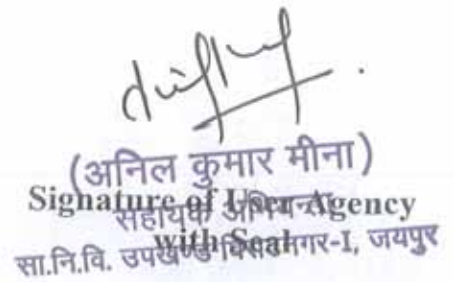 (अनिल कुमार मीना)
Signature of User Agency
सहायक अभियन्ता
with Seal
सा.नि.वि. उपखण्ड नगर-I, जयपुर